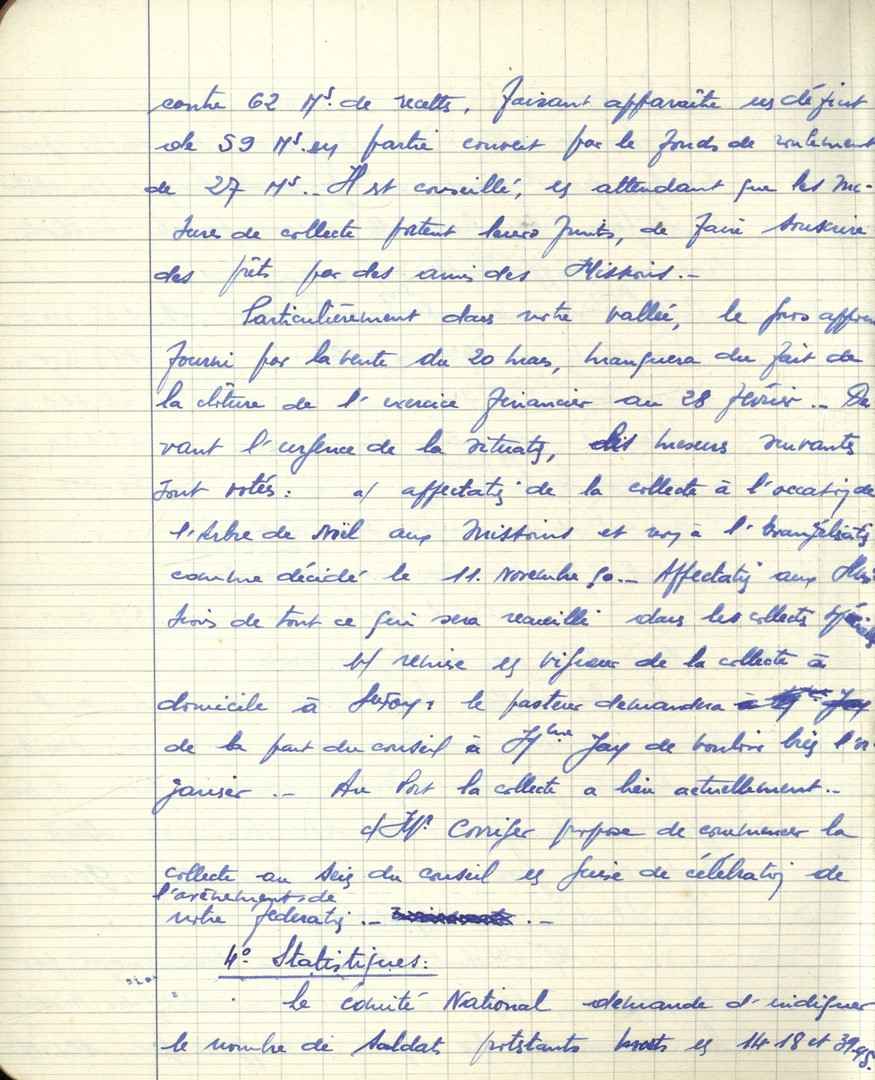 contre 62 Ms. de recettes, faisant apparaître un déficit
de 59 Ms. en partie couvert par le fonds de roulement
de 27 Ms.. Il est conseillé, en attendant que les me-
sures de collecte portent leurs fruits, de faire souscrire
des prêts par des amis des Missions.-
Particulièrement dans notre vallée, le gros
fourni par la vente du 20 mars, manquera du fait de
la clôture de l'exercice financier au 28 février.. De
vant l'urgence de la situation, les mesures suivantes
sont votées : a/ affectation de la collecte à l'occasion de
l'Arbre de Noël aux Missions et non à l'Evangélisation
comme décidé le 11. Novembre 50.- Affectation aux Mis-
sions de tout ce qui sera recueilli dans les collectes
b/ remise en vigueur de la collecte à
domicile à : le pasteur demandera
de la part du conseil à Mme Jay de vouloir bien l'or-
ganiser .- Au Port la collecte a lieu actuellement..
c/ Mr. propose de commencer la
collecte au sein du conseil en guise de célébration de
l'avènement de
notre federation .- .-
4° Statistiques:
Le comité National demande d'indiquer
le nombre de soldats protestants morts en 14-18 et 39-45.